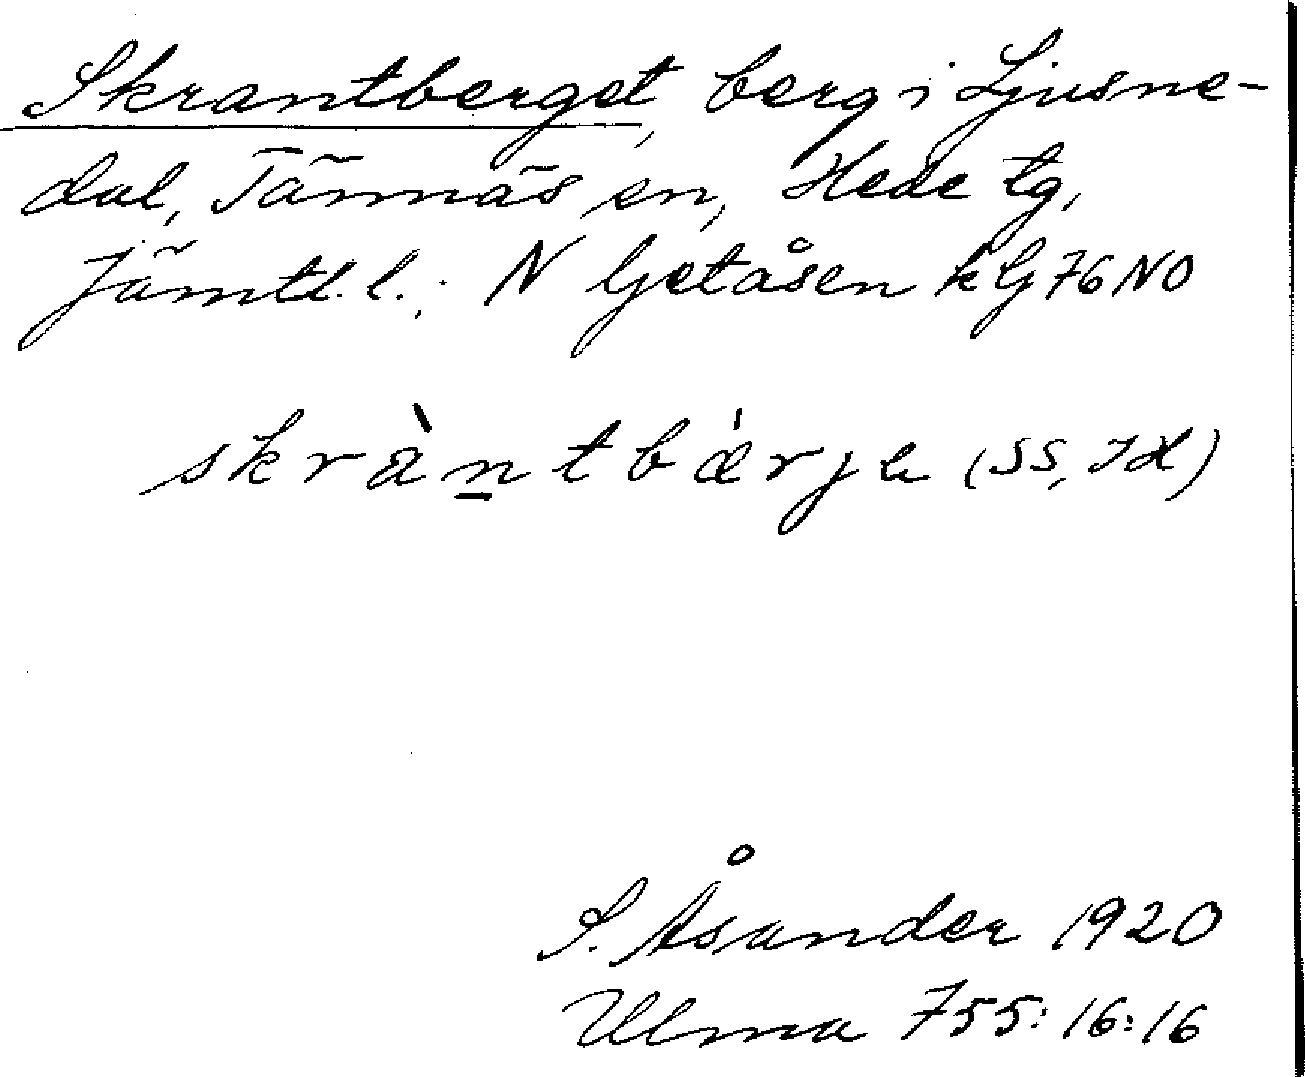 Skrantberget, berg i Ljusne-
dal, Tännäs sn, Hede tg,
Jämtl. l.; N Getåsen kG76NO
skràn̲tbǽrje (SS, JH)
S. Åsander 1920
Ulma 755:16:16